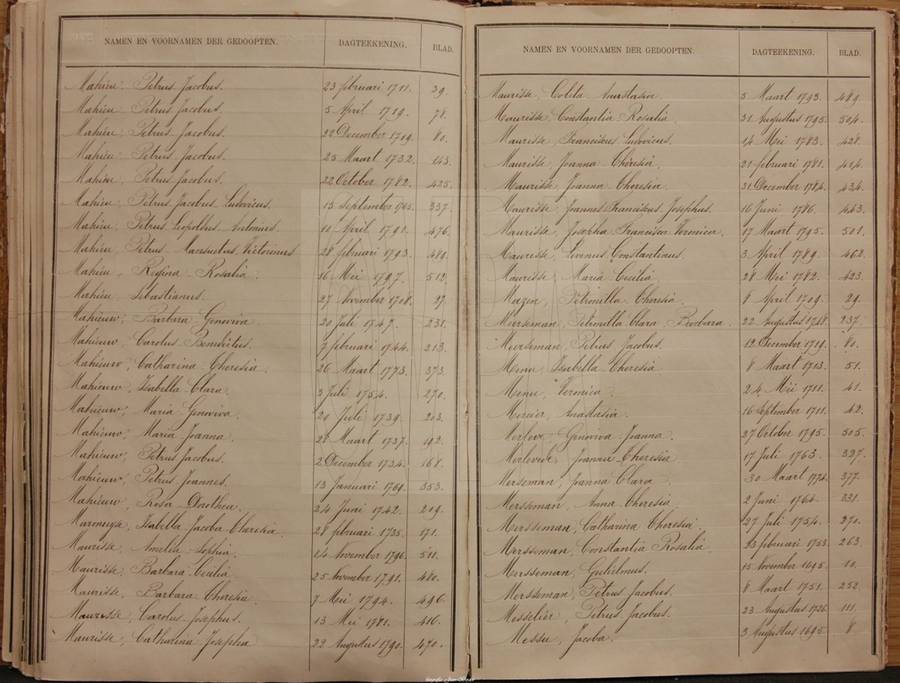 NAMEN EN VOORNAMEN DER GEDOOPTEN. DAGTEEKENING. BLAD.
Mahieu, Petrus Jacobus. 23 februari 1711. 39.
Mahieu, Petrus Jacobus. 5 April 1719. 78.
Mahieu, Petrus Jacobus. 22 December 1719. 80.
Mahieu, Petrus Jacobus. 25 Maart 1732.
Mahieu, Petrus Jacobus. 22 October 1782. 425.
Mahieu, Petrus Jacobus Ludovicus. 13 September 337.
Mahieu, Petrus Leopoldus Antonius. 11 April 1792. 476.
Mahieu, Petrus Mansuetus Victorinus 28 februari 1793. 480.
Mahieu, Regina Rosalia. 16 Mei 1797. 512.
Mahieu, Sebastianus. 27 November 1708. 27.
Mahieuw, Barbara Genoviva. 20 Juli 1747. 231.
Mahieuw, Carolus Benedictus. 7 februari 1744. 213.
Mahieuw, Catharina Theresia. 26 Maart 1773. 373.
Mahieuw, Isabella Clara. 3 Juli 1754. 270.
Mahieuw, Maria Genoviva. 20 Juli 1739. 203.
Mahieuw, Maria Joanna. 28 Maart 1737. 192.
Mahieuw, Petrus Jacobus. 2 December 1734. 168.
Mahieuw, Petrus Joannes. 13 Januari 1769. 353.
Mahieuw, Rosa Dorothea. 24 Juni 1742. 209.
Isabella Jacoba Theresia. 28 februari 1735. 171.
Maurisse, Amelia Sophia. 14 November 1796. 511.
Maurisse, Barbara Cecilia. 25 November 1791. 480.
Maurisse, Barbara Theresia. 7 Mei 1794. 496.
Maurisse, Carolus Josephus. 13 Mei 1781. 416.
Maurisse, Catharina Josepha 22 Augustus 1790. 470.
NAMEN EN VOORNAMEN DER GEDOOPTEN. DAGTEEKENING. BLAD.
Maurisse, Coleta Anastasia. 5 Maart 1793. 489.
Maurisse, Constantia Rosalia. 31 Augustus 1795. 504.
Maurisse, Franciscus Ludovicus. 14 Mei 1783. 428.
Maurisse, Joanna Theresia. 21 februari 1781. 414.
Maurisse, Joanna Theresia. 31 December 1784. 434.
Maurisse, Joannes Franciscus Josephus. 16 Juni 1786. 443.
Maurisse, Josepha Francisca Veronica. 17 Maart 1795. 501.
Maurisse, Livinus Constantinus. 3 April 1789. 462.
Maurisse, Maria Cecilia. 28 Mei 1782. 423.
Mazen, Petronilla Theresia. 8 April 1709. 29.
Meerseman, Petronilla Clara Barbara. 22 Augustus 1748. 237.
Meerseman, Petrus Jacobus. 12 December 1719. 80.
Menu, Isabella Theresia. 8 Maart 1713. 51.
Menu, Veronica. 24 Mei 1711. 41.
Mercier, Anastasia. 16 September 1711. 42.
Genoviva Joanna. 27 October 1795. 505.
Joanna Theresia. 17 Juli 1763.
Merseman, Joanna Clara. 30 Maart 1774. 377.
Mersseman, Anna Theresia. 2 Juni 1764. 331.
Mersseman, Catharina Theresia. 27 Juli 1754. 270.
Mersseman, Constantia Rosalia. 23 februari 1753. 263.
Mersseman, Guilielmus. 15 November 1695. 10.
Mersseman, Petrus Jacobus. 8 Maart 1751. 252.
Messelier, Petrus Jacobus. 23 Augustus 1726. 111.
Messeu, Jacoba. 3 Augustus 1695. 8.